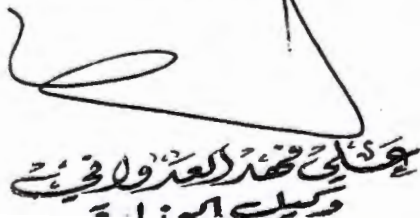 علي فهد العدواني
وكيل الوزارة